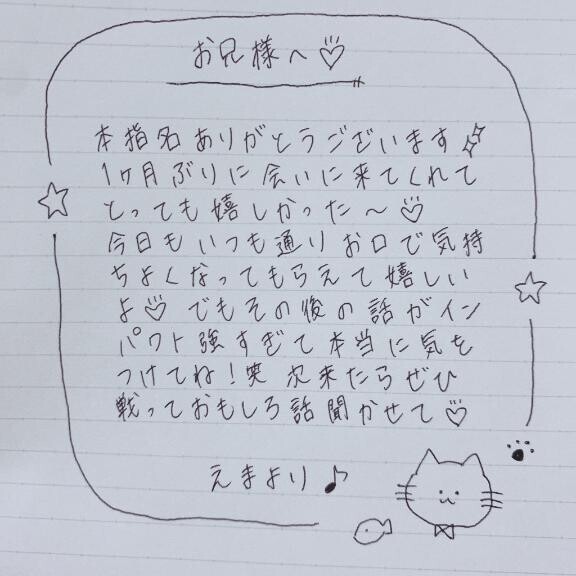 お兄様へ♡
本指名ありがとうございます
1ヶ月ぶりに会いに来てくれて
とっても嬉しかった〜♡
今日もいつも通りお口で気持
ちよくなってもらえて嬉しい
よ♡でもその後の話がイン
パクト強すぎて本当に気を
つけてね!笑 次来たらぜひ
戦っておもしろ話聞かせて♡
えまより♪